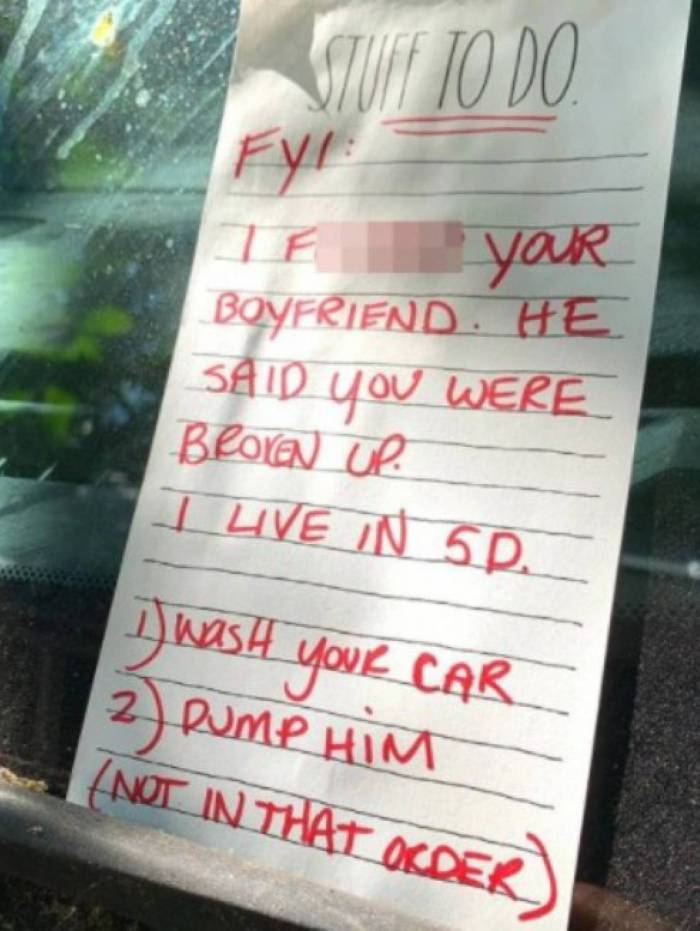 STUFF TO DO.
FYI:
I F YOUR
BOYFRIEND. HE
SAID YOU WERE
BROKEN UP.
I LIVE IN 5D.
1) WASH YOUR CAR
2) DUMP HIM
(NOT IN THAT ORDER)